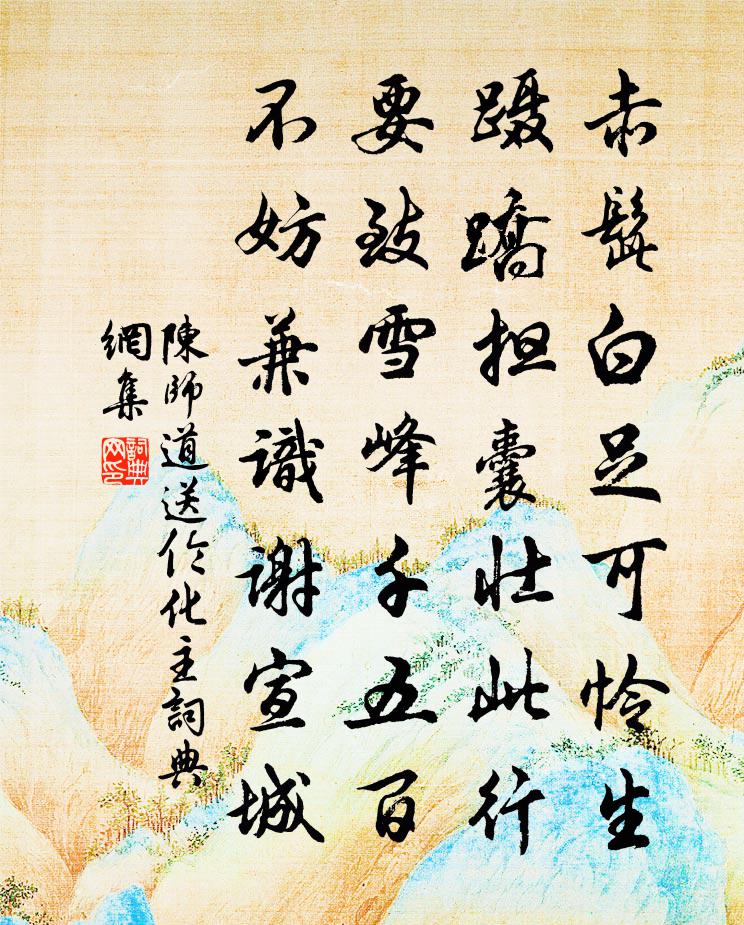 赤髭白足可怜生
蹑蹻担囊壮此行
要致雪峰千五百
不妨兼識谢宣城
陳師道送伱化主詞典
網集
詞典
网印